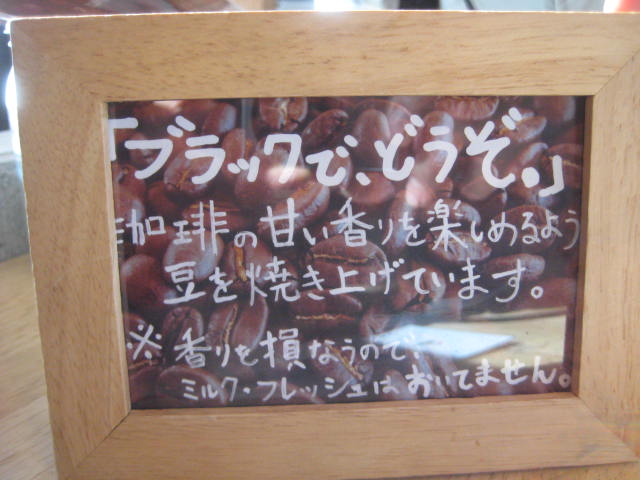 「ブラックで、どうぞ。」
珈琲の甘い香りを楽しめるよう
豆を焼き上げています。
※香りを損なうので、
ミルク・フレッシュはおいてません。